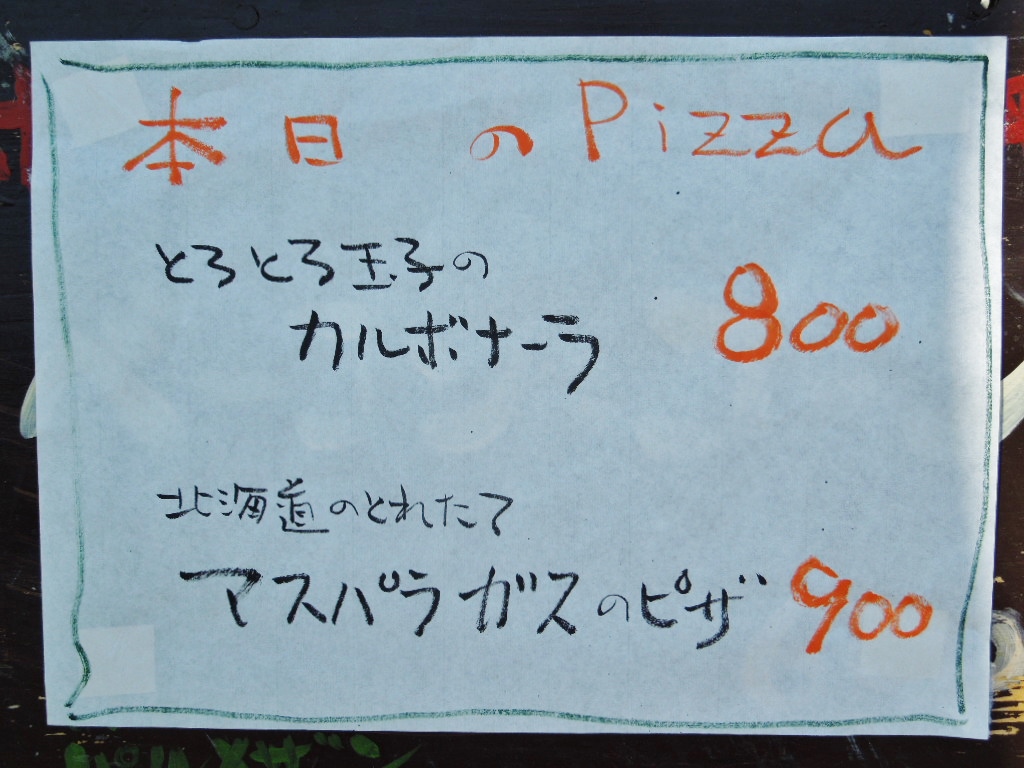 本日のPizza
とろとろ玉子の
カルボナーラ 800
北海道のとれたて
アスパラガスのピザ 900